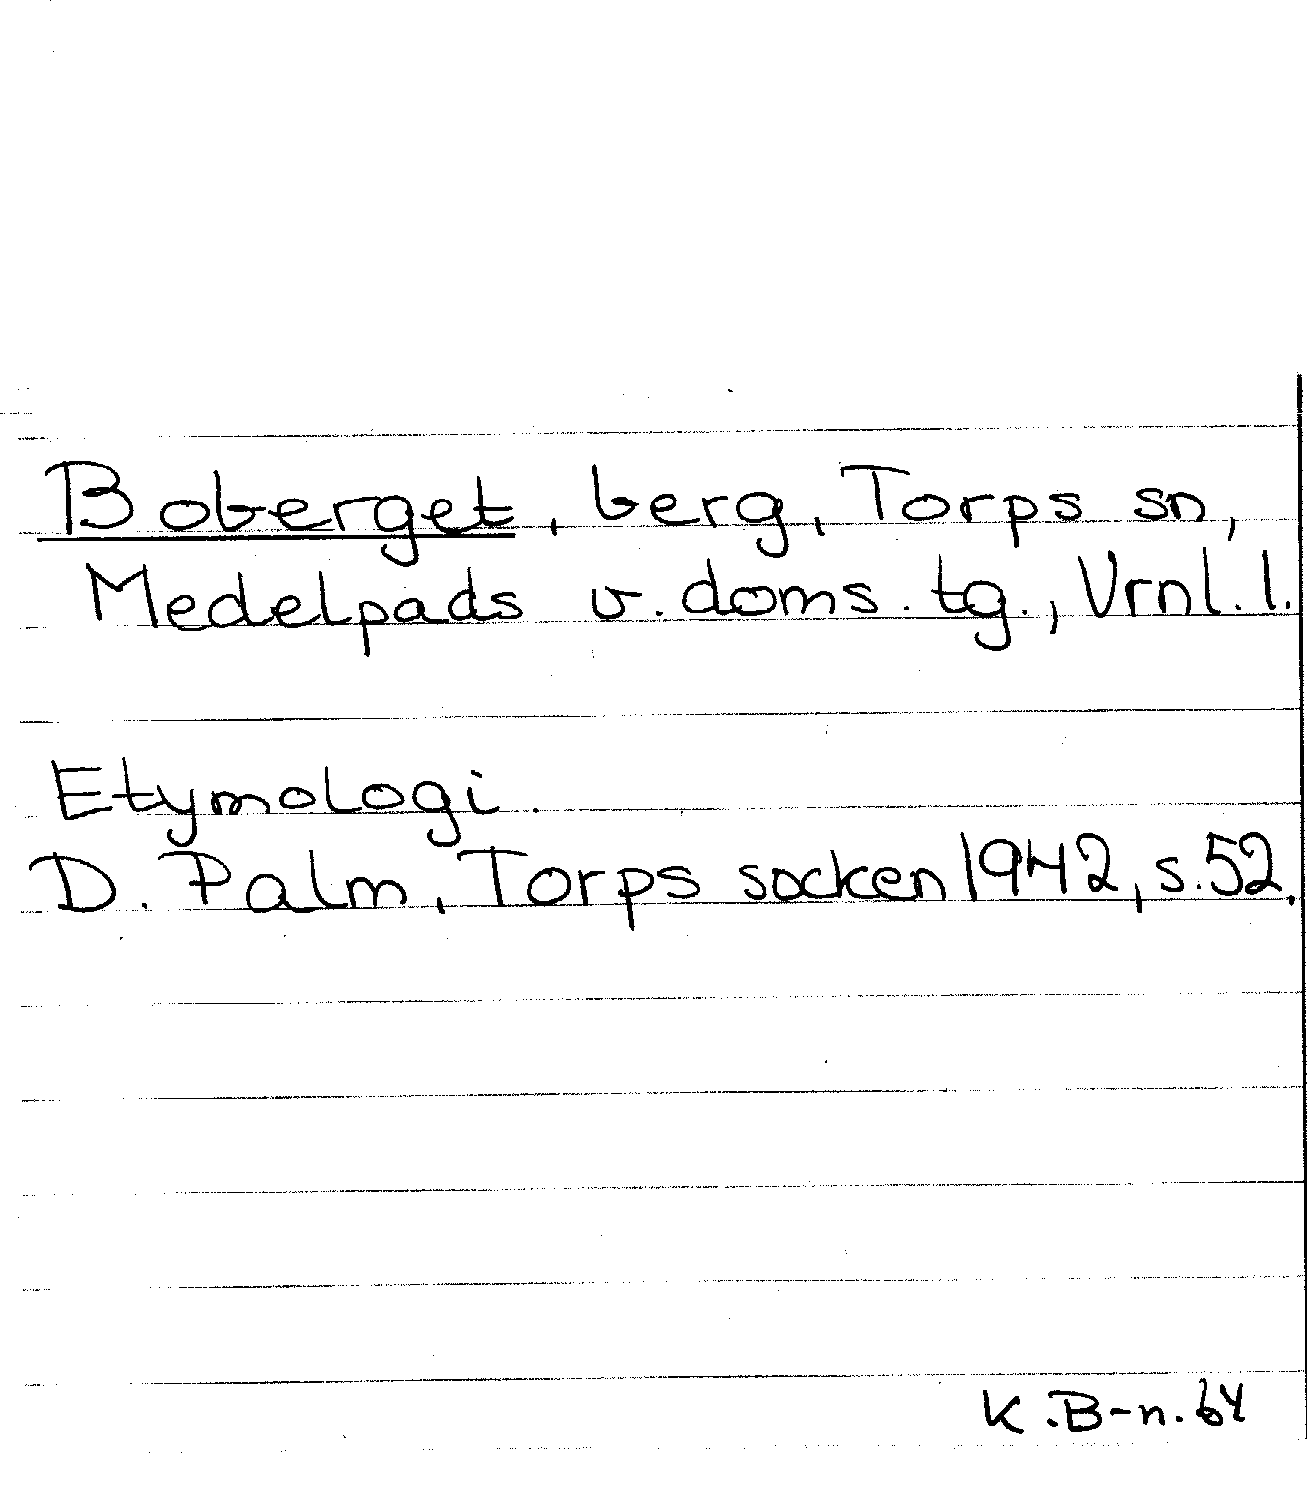 Boberget, berg, Torps sn,
Medelpads v. doms. tg., Vrnl. l.
Etymologi.
D. Palm, Torps socken 1942, s. 52.
K.B-n. 64